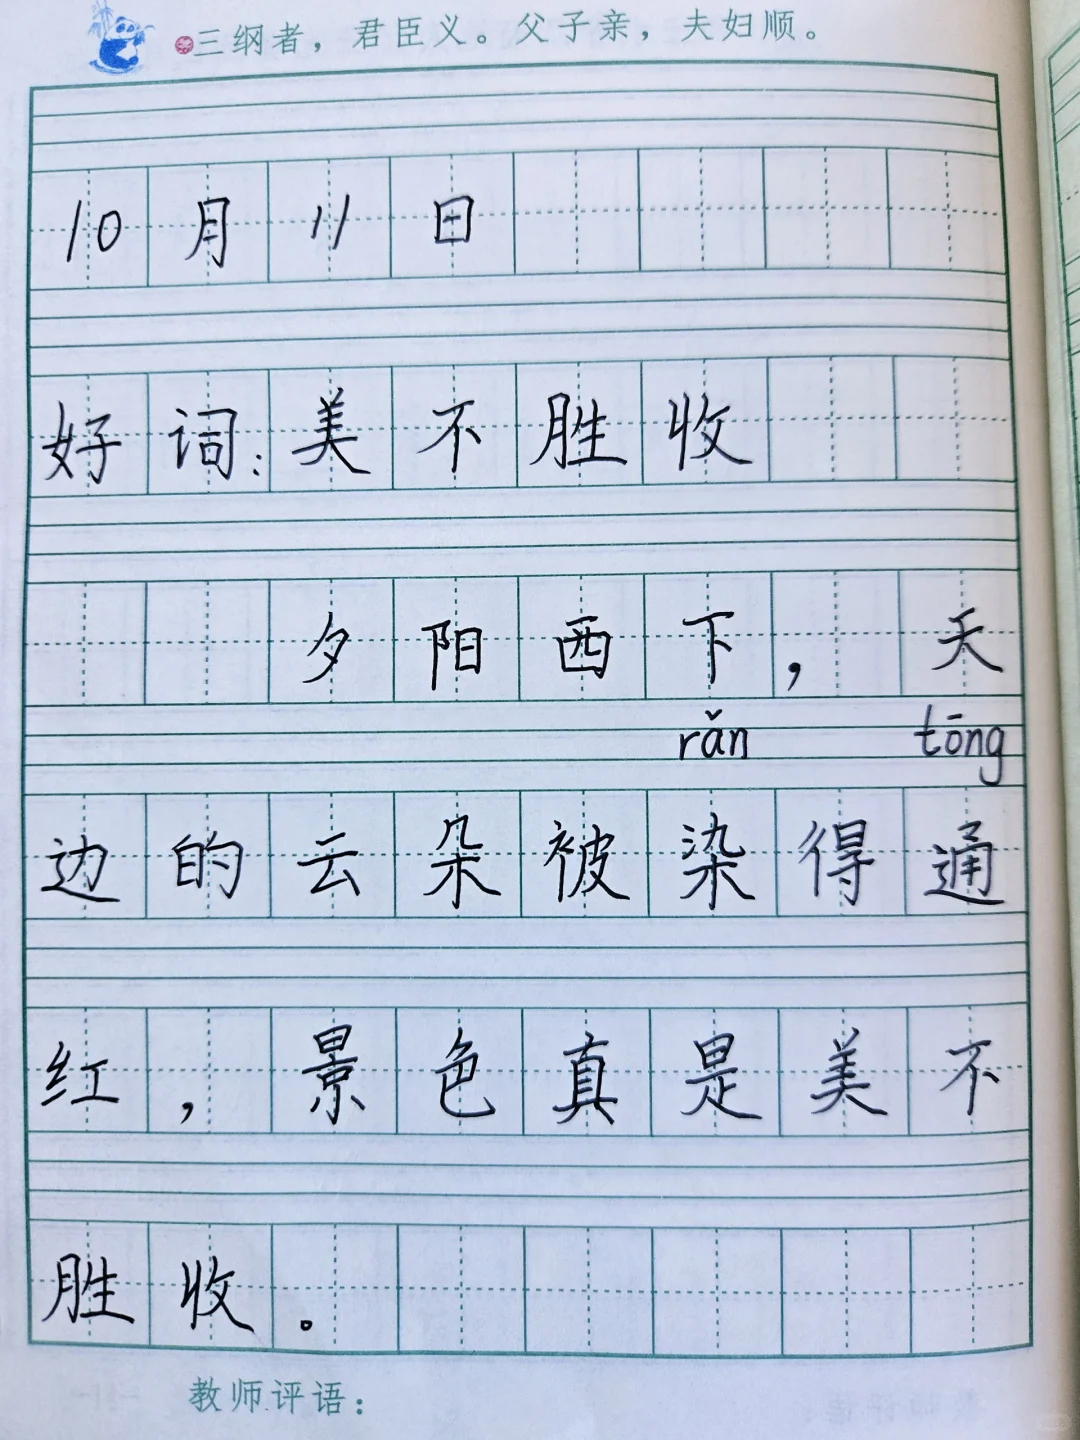 三纲者，君臣义。父子亲，夫妇顺。
10月11日
好词：美不胜收
夕阳西下，天
rǎn tōng
边的云朵被染得通
红，景色真是美不
胜收。
教师评语：